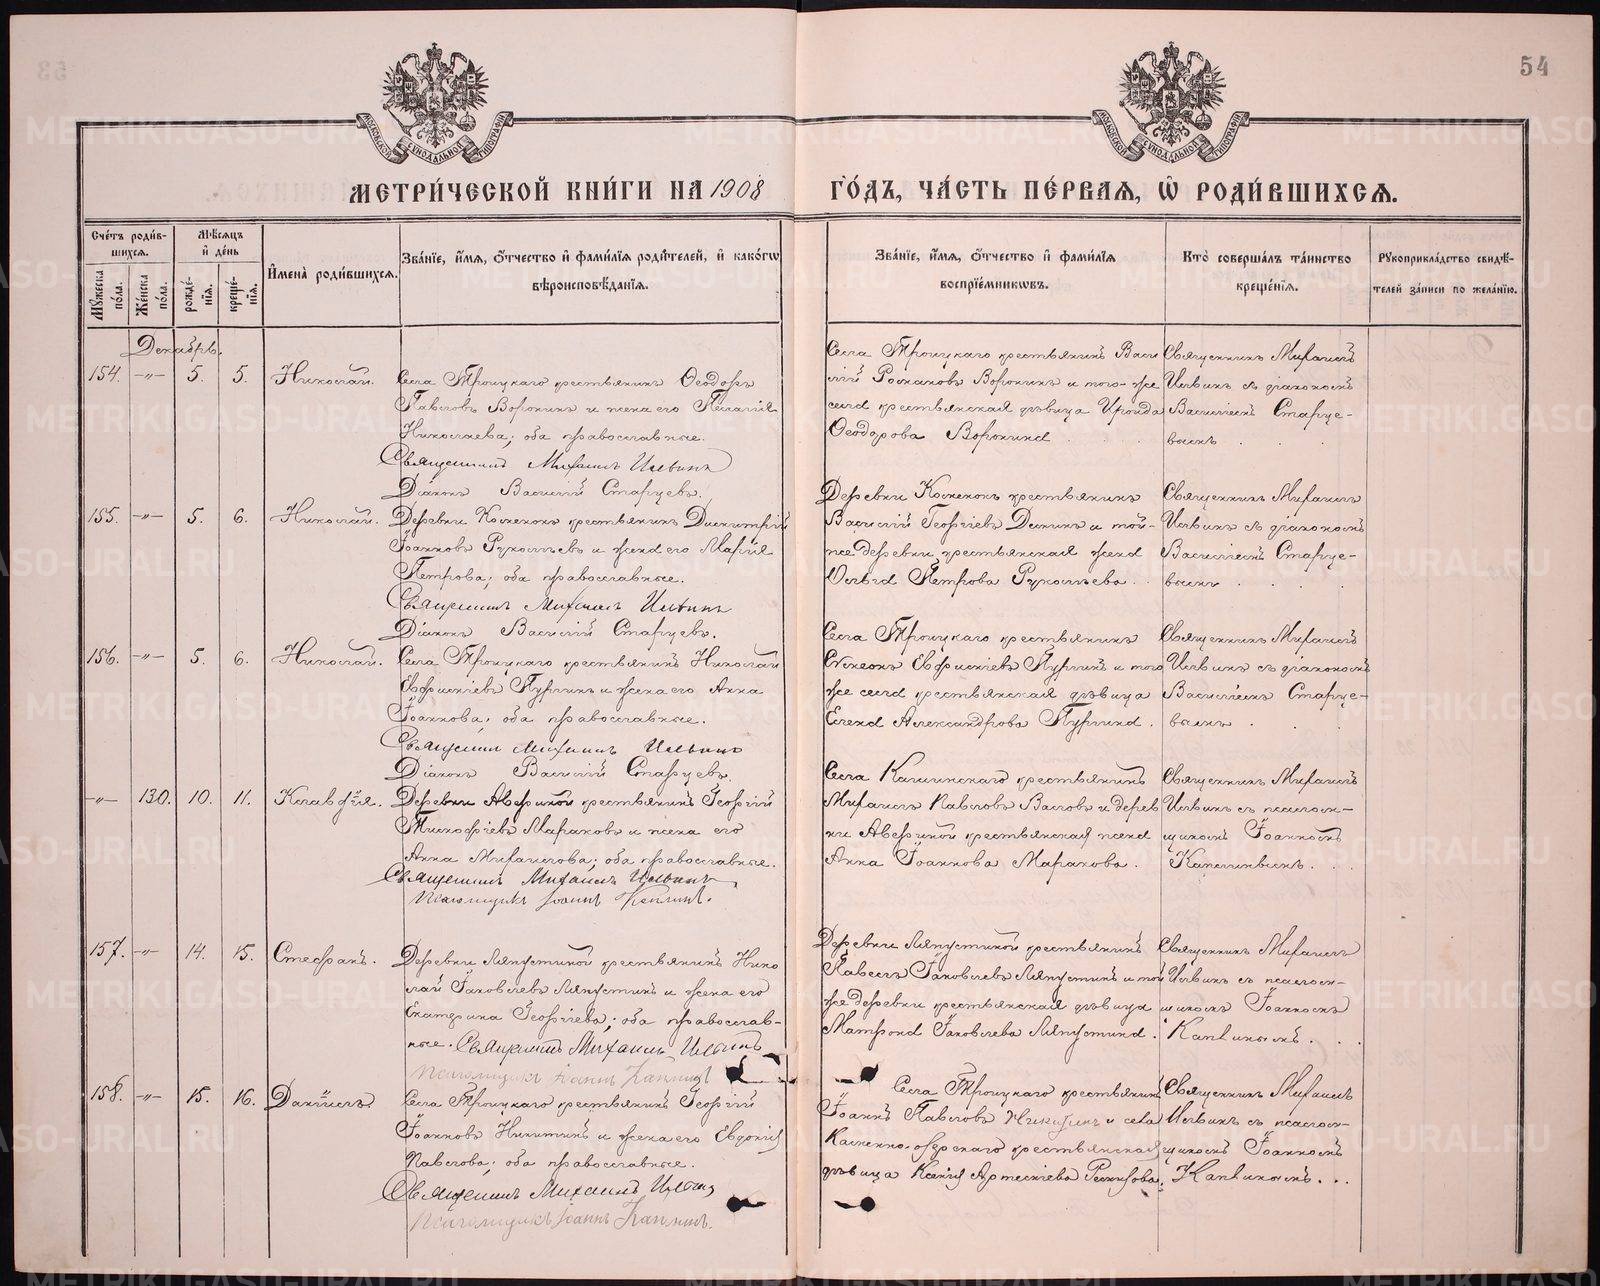 54
МОСКОВСКОЙ СУНОДАЛЬНОЙ ТИПОГРАФІИ
МОСКОВСКОЙ СУНОДАЛЬНОЙ ТИПОГРАФІИ
МЕТРИ́ЧЕСКОЙ КНИ́ГИ НА 1908 ГО́ДЪ, ЧА́СТЬ ПЕ́РВАЯ, Ѡ҆ РОДИ́ВШИХСЯ.
Сче́тъ роди́вшихся.
Мꙋ́жеска по́ла.
Же́нска по́ла.
Мѣ́сяцъ и҆ де́нь
рожде́нїя.
креще́нїя.
И҆мена̀ роди́вшихся.
Зва́нїе, и҆́мя, ѻ҆́тчество и҆ фами́лїя роди́телей, и҆ како́гѡ
вѣроисповѣ́данїя.
Зва́нїе, и҆́мя, ѻ҆́тчество и҆ фами́лїя
воспрїе́мниковъ.
Кто̀ соверша́лъ та́инство
креще́нїя.
Рꙋкоприкла́дство свидѣ́-
телей за́писи по жела́нїю.
Декабрь.
154. -"- 5. 5. Николай.
Села Троицкаго крестьянинъ Ѳеодоръ
Павловъ Воронинъ и жена его Пелагія
Николаева; оба православные.
Священникъ Михаилъ Ильинъ
Діаконъ Василій Старцевъ.
Села Троицкаго крестьянинъ Васи
лій Романовъ Воронинъ и того-же
села крестьянская дѣвица Ироида
Ѳеодорова Воронина
Священникъ Михаилъ
Ильинъ съ діакономъ
Василіемъ Старце-
вымъ
155. -"- 5. 6. Николай.
Деревни крестьянинъ Димитрій
Іоанновъ и жена его Марія
Петрова; оба православные.
Священникъ Михаилъ Ильинъ
Діаконъ Василій Старцевъ.
Деревни крестьянинъ
Василій Георгіевъ и той-
же деревни крестьянская жена
Ольга Петрова
Священникъ Михаилъ
Ильинъ съ діакономъ
Василіемъ Старце-
вымъ
156. -"- 5. 6. Николай.
Села Троицкаго крестьянинъ Николай
Евфиміевъ Пургинъ и жена его Анна
Іоаннова; оба православные.
Священникъ Михаилъ Ильинъ
Діаконъ Василій Старцевъ.
Села Троицкаго крестьянинъ
Симеонъ Евфиміевъ Пургинъ и того
же села крестьянская дѣвица
Елена Александрова Пургина.
Священникъ Михаилъ
Ильинъ съ діакономъ
Василіемъ Старце-
вымъ
-"- 130. 10. 11. Клавдія.
Деревни Авериной крестьянинъ Георгій
Тимофѣевъ Мараковъ и жена его
Анна Михаилова; оба православные.
Священникъ Михаилъ Ильинъ
Псаломщикъ Іоаннъ Каплинъ.
Села Кашинскаго крестьянинъ
Михаилъ Павловъ и дерев
ни Авериной крестьянская жена
Анна Іоаннова Маракова.
Священникъ Михаилъ
Ильинъ съ псалом-
щикомъ Іоанномъ
Каплинымъ.
157. -"- 14. 15. Стефанъ.
Деревни Ляпустиной крестьянинъ Нико
лай Іаковлевъ Ляпустинъ и жена его
Екатерина Георгіева; оба православ-
ные. Священникъ Михаилъ Ильинъ
Псаломщикъ Іоаннъ Каплинъ
Деревни Ляпустиной крестьянинъ
Павелъ Іаковлевъ Ляпустинъ и той
же деревни крестьянская дѣвица
Матрона Іаковлева Ляпустина.
Священникъ Михаилъ
Ильинъ съ псалом-
щикомъ Іоанномъ
Каплинымъ.
158. -"- 15. 16. Даніилъ.
Села Троицкаго крестьянинъ Георгій
Іоанновъ Никитинъ и жена его Евдокія
Павлова; оба православные.
Священникъ Михаилъ Ильинъ
Псаломщикъ Іоаннъ Каплинъ.
Села Троицкаго крестьянинъ
Іоаннъ Павловъ Никитинъ и села
Каменно-озерскаго крестьянская
дѣвица Ксенія Артеміева
Священникъ Михаилъ
Ильинъ съ псалом-
щикомъ Іоанномъ
Каплинымъ...